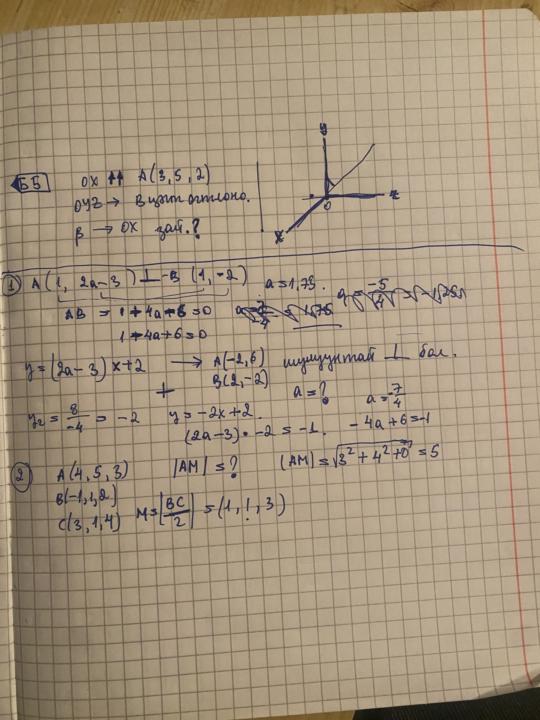 55 OX ↑↑ A(3, 5, 2)
OYZ → B цэгт огтлоно.
B → OX зай.?
y
z
O
x
① A(1, 2a-3) ⊥ B(1, -2) a = 1,75.
AB = 1 + 4a + 6 = 0
1 - 4a + 6 = 0
y = (2a-3)x + 2 → A(-2, 6) шулуунтай ⊥ бол.
B(2, -2) a = ?
y₂ = 8/-4 = -2 y = -2x + 2. a = 7/4
(2a-3) · -2 = -1. -4a + 6 = -1
② A(4, 5, 3) |AM| = ? |AM| = √3² + 4² + 0 = 5
B(-1, 1, 2)
C(3, 1, 4) M = |BC/2| = (1, 1, 3)